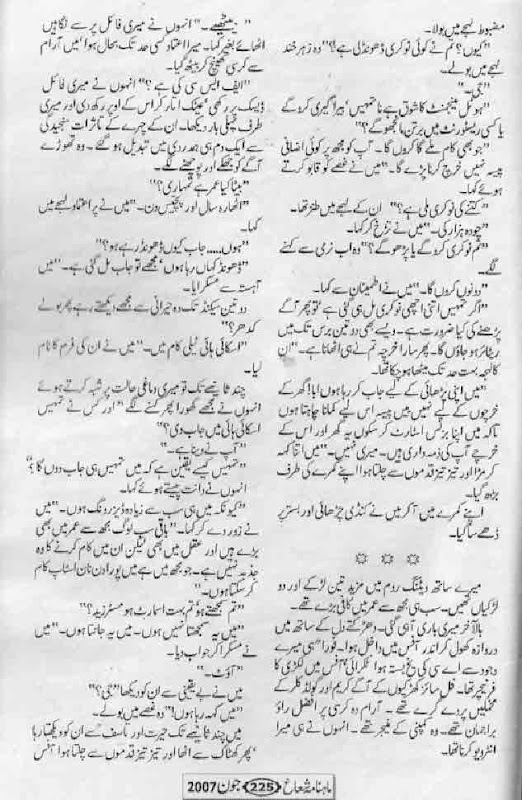 مضبوط لہجے میں بولا۔
”کیوں؟ تم نے کوئی نوکری ڈھونڈلی ہے؟“ وہ زہر خند
لہجے میں بولے۔
”جی۔“
”ہوٹل مینجمنٹ کا شوق ہے نا تمہیں‘ بیرا گیری کرو گے
یا کسی ریسٹورنٹ میں برتن مانجھو گے؟“
”جو بھی کام ملے گا کروں گا۔ آپ کو مجھ پر کوئی اضافی
پیسہ نہیں خرچ کرنا پڑے گا۔“ میں نے غصے کو قابو کرتے
ہوئے کہا۔
”کتنے کی نوکری ملی ہے؟“ ان کے لہجے میں طنز تھا۔
”چودہ ہزار کی۔“ میں نے تڑخ کر کہا۔
”تم نوکری کرو گے یا پڑھو گے؟“ وہ اب نرمی سے کہنے
لگے۔
”دونوں کروں گا۔“ میں نے اطمینان سے کہا۔
”اگر تمہیں اتنی اچھی نوکری مل ہی گئی ہے تو پھر آگے
پڑھنے کی کیا ضرورت ہے۔ ویسے بھی دو تین برس تک میں
ریٹائر ہو جاؤں گا۔ پھر سارا خرچہ تم نے ہی اٹھانا ہے۔“ ان
کا لہجہ بہت حد تک میٹھا ہو چکا تھا۔
”میں اپنی پڑھائی کے لیے جاب کر رہا ہوں ابا! گھر کے
خرچوں کے لیے نہیں‘ میں پیسہ اس لیے کمانا چاہتا ہوں
تاکہ میں اپنا بزنس اسٹارٹ کر سکوں یہ گھر اور اس کے
خرچے آپ کی ذمہ داری ہیں۔ میری نہیں۔“ میں اتنا کہہ
کر مڑا اور تیز تیز قدموں سے چلتا ہوا اپنے کمرے کی طرف
بڑھ گیا۔
اپنے کمرے میں آکر میں نے کنڈی چڑھائی اور بستر پر
ڈھے سا گیا۔
میرے ساتھ ویٹنگ روم میں مزید تین لڑکے اور دو
لڑکیاں تھیں۔ سب ہی مجھ سے عمر میں کافی بڑے تھے۔
بالآخر میری باری آ ہی گئی۔ دھڑکتے دل کے ساتھ میں
دروازہ کھول کر اندر آفس میں داخل ہوا۔ فوراً“ ہی میرے
وجود سے اے سی کی یخ بستہ ہوا ٹکرائی‘ آفس میں لکڑی کا
فرنیچر تھا۔ فل سائز کھڑکیوں کے آگے کریم اور گولڈ کلر کے
مخملیں پردے گرے تھے۔ آرام دہ کرسی پر افضل راؤ
براجمان تھے۔ وہ کمپنی کے منیجر تھے۔ انہوں نے ہی میرا
انٹرویو کرنا تھا۔
”بیٹھیے۔“ انہوں نے میری فائل پر سے نگاہیں
اٹھائے بغیر کہا۔ میرا اعتماد کسی حد تک بحال ہوا‘ میں آرام
سے کرسی کھینچ کر بیٹھ گیا۔
”ایف ایس سی کی ہے؟“ انہوں نے میری فائل
ڈیسک پر رکھی‘ عینک اتار کر اس کے اوپر رکھ دی اور میری
طرف پہلی بار دیکھا۔ ان کے چہرے کے تاثرات سنجیدگی
سے ایک دم ہی ہمدردی میں تبدیل ہو گئے۔ وہ تھوڑے
آگے کو جھکے اور پوچھنے لگے۔
”بیٹا کیا عمر ہے تمہاری؟“
”اٹھارہ سال اور پچیس دن۔“ میں نے پر اعتماد لہجے میں
کہا۔
”ہوں..... جاب کیوں ڈھونڈ رہے ہو؟“
”ڈھونڈ کہاں رہا ہوں‘ مجھے تو جاب مل گئی ہے۔“ میں
آہستہ سے مسکرایا۔
دو تین سیکنڈ تک وہ حیرانی سے مجھے دیکھتے رہے پھر بولے
”کدھر؟“
”اسکائی ہائی ٹیلی کام میں۔“ میں نے ان کی فرم کا نام
لیا۔
چند ثانیے تک تو میری دماغی حالت پر شبہ کرتے ہوئے
انہوں نے مجھے گھورا پھر کہنے لگے ”اور کس نے تمہیں
اسکائی ہائی میں جاب دی؟“
”آپ نے دینا ہے۔“
”تمہیں کیسے یقین ہے کہ میں تمہیں ہی جاب دوں گا؟“
انہوں نے دانت پیستے ہوئے کہا۔
”کیونکہ میں ہی سب سے زیادہ ڈیزرونگ ہوں۔“ میں
نے زور دے کر کہا۔ ”باقی سب لوگ مجھ سے عمر میں بھی
بڑے ہیں اور عقل میں بھی لیکن ان میں کام کرنے کا وہ
جذبہ نہیں ہے۔ جو مجھ میں ہے میں پورا دن نان اسٹاپ کام
کر سکتا ہوں۔“
”تم سمجھتے ہو تم بہت اسمارٹ ہو مسٹر زید؟“
”میں یہ سمجھتا نہیں ہوں۔ میں یہ جانتا ہوں۔“ میں
نے مسکرا کر جواب دیا۔
”آؤٹ۔“
میں نے بے یقینی سے ان کو دیکھا ”جی؟“
”میں کہہ رہا ہوں!“ وہ غصے میں بولے۔
میں چند ثانیے تک حیرت اور تاسف سے ان کو دیکھتا رہا
‘ پھر کھٹاک سے اٹھا اور تیز تیز قدموں سے چلتا ہوا آفس
ماہنامہ شعاع 225 جون 2007